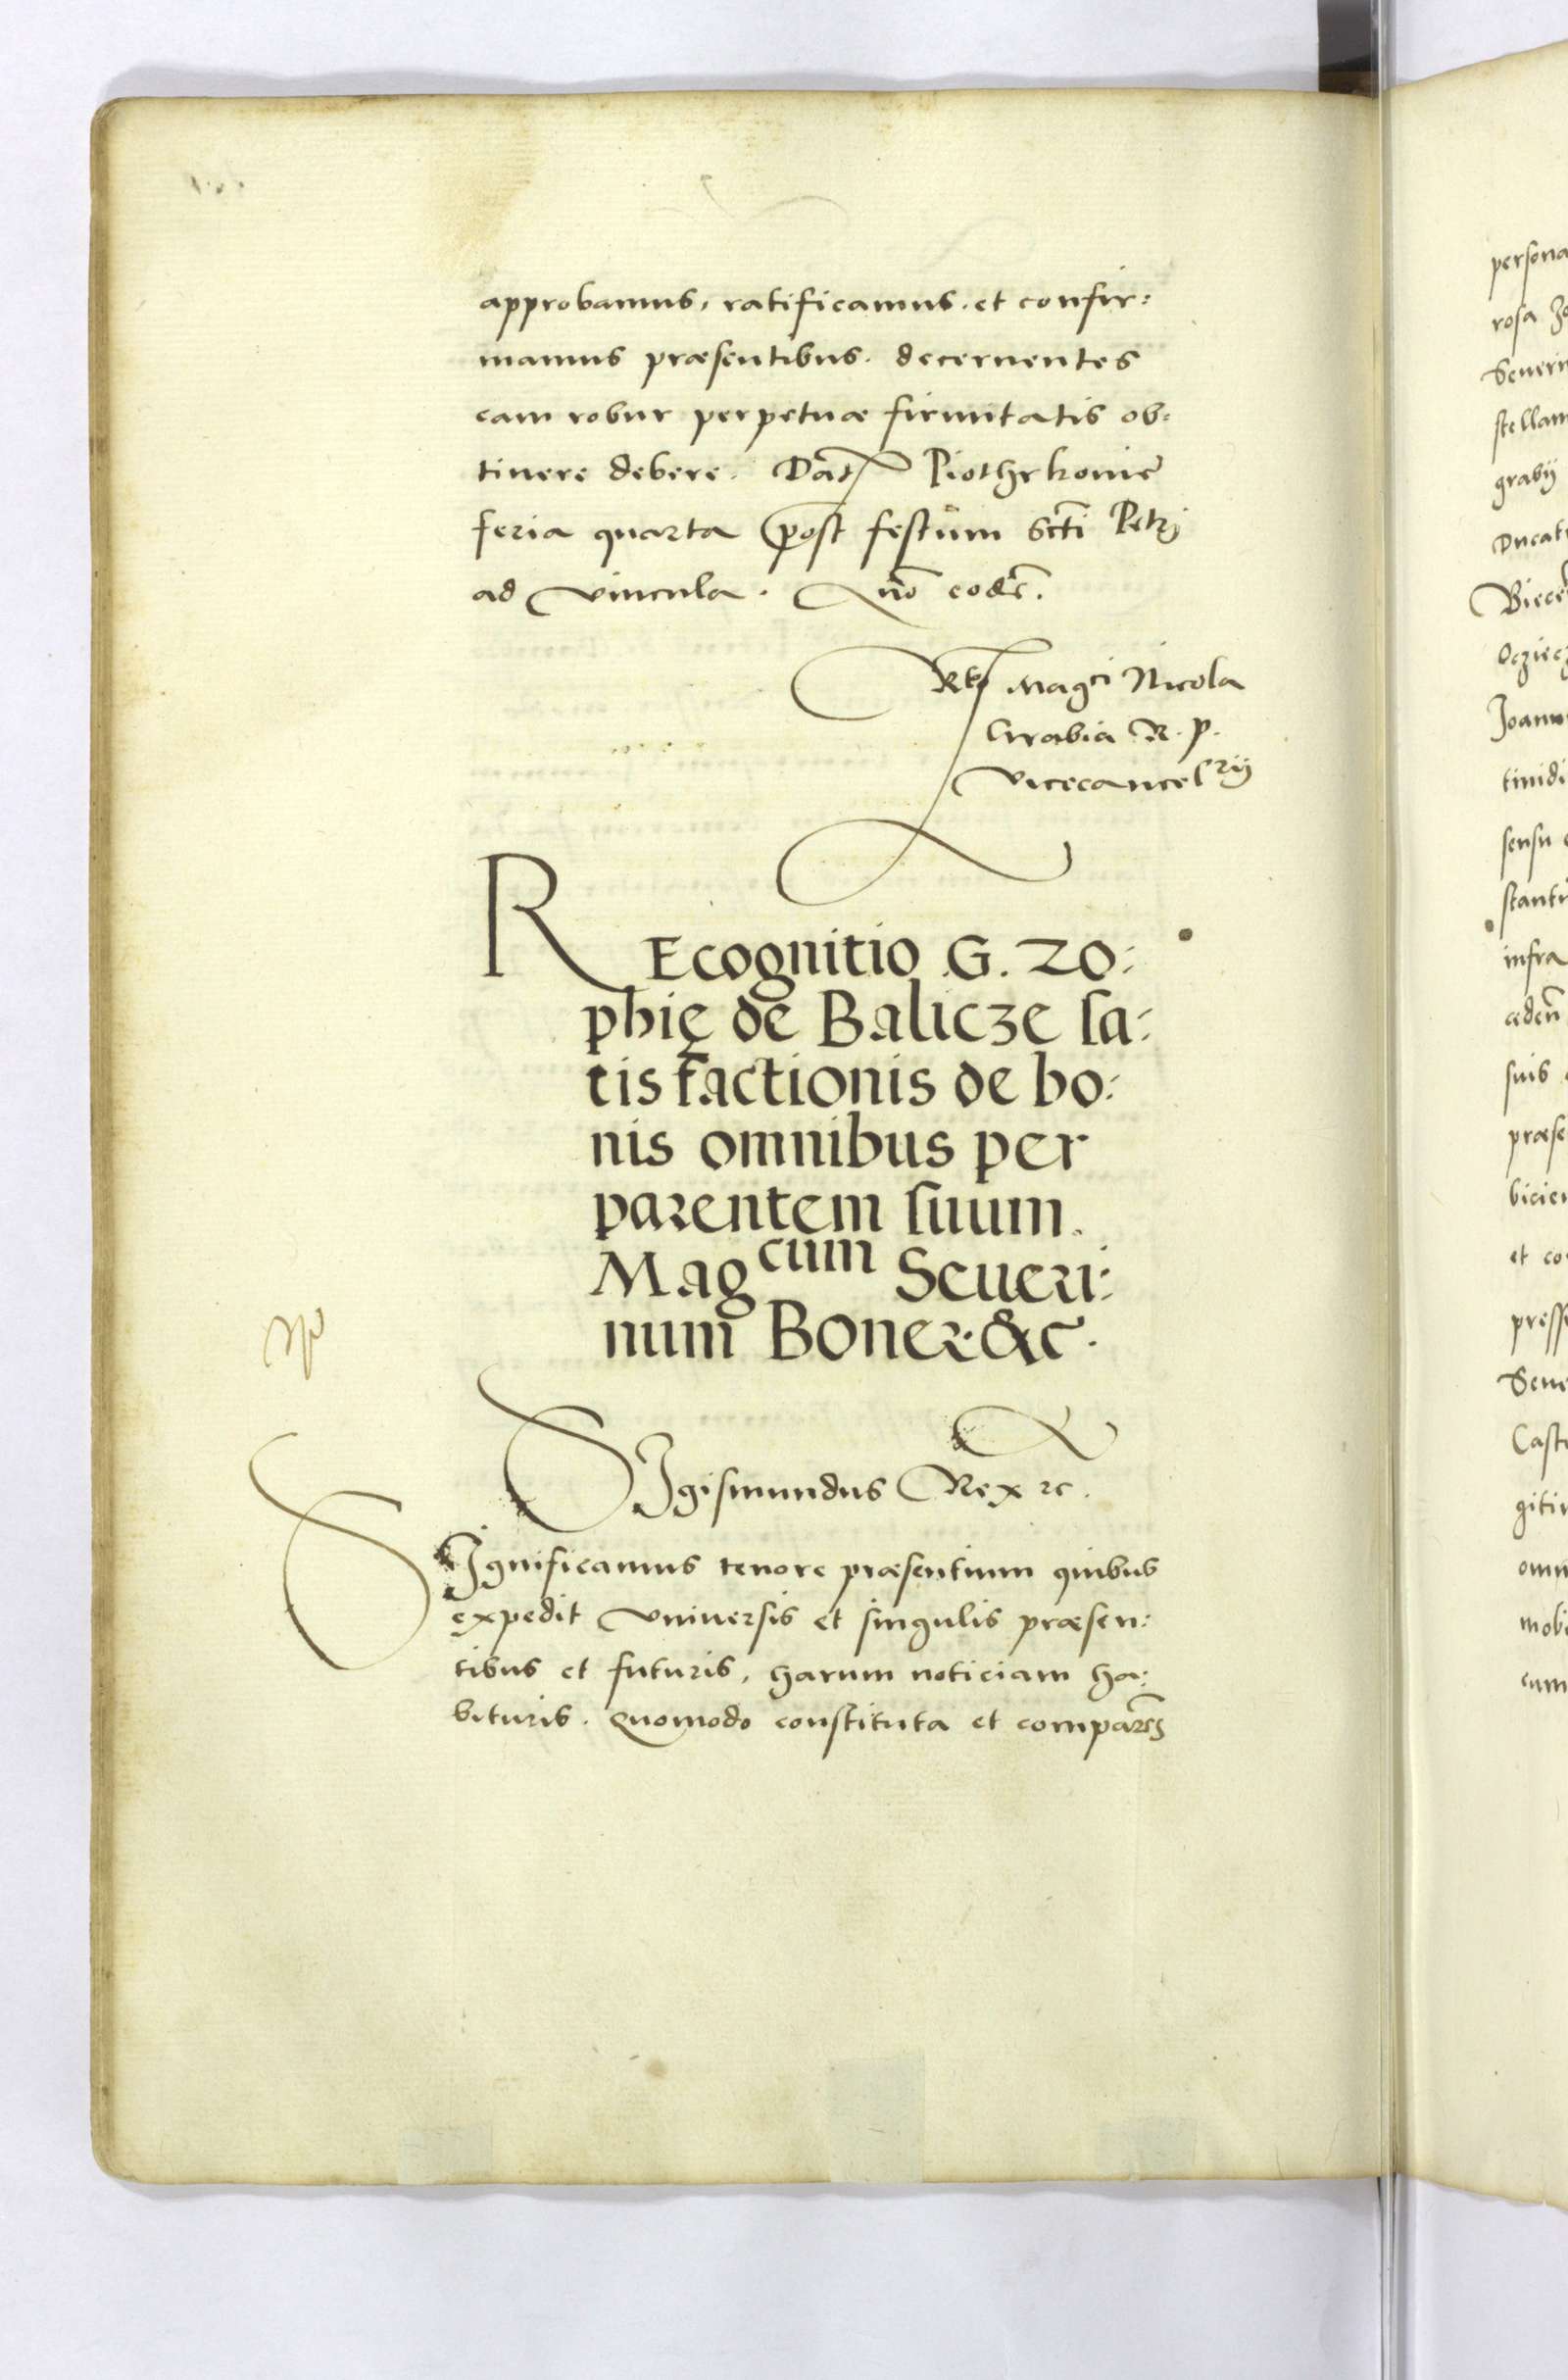 approbamus, ratificamus. et confir:
mamus præsentibus. decernentes
eam robur perpetuæ firmitatis ob:
tinere debere. Dat Piothrkouie
feria quarta post festum Scti Petrj
ad vincula. Año eodē.
Rto Magci Nicola
Grabia R. p.
Vicecancelrij
REcognitio G. Zo:
phię de Balicze sa:
tisfactionis de bo:
nis omnibus per
parentem suum.
Magcum Seueri:
num Boner. &c.
SIgismundus Rex &c.
SIgnificamus tenore præsentium quibus
expedit vniuersis et singulis præsen:
tibus et futuris, harum noticiam ha:
bituris. Quomodo constituta et comparēs
persona
rosa Zo
Seueri
stellam
grabij
Ducat
Biece
Ocziecz
Joann
tinidi
sensu
stanti
infra
cedeñ
suis
præse
bicien
et co
presse
Seue
Caste
giti
omn
mobi
cum